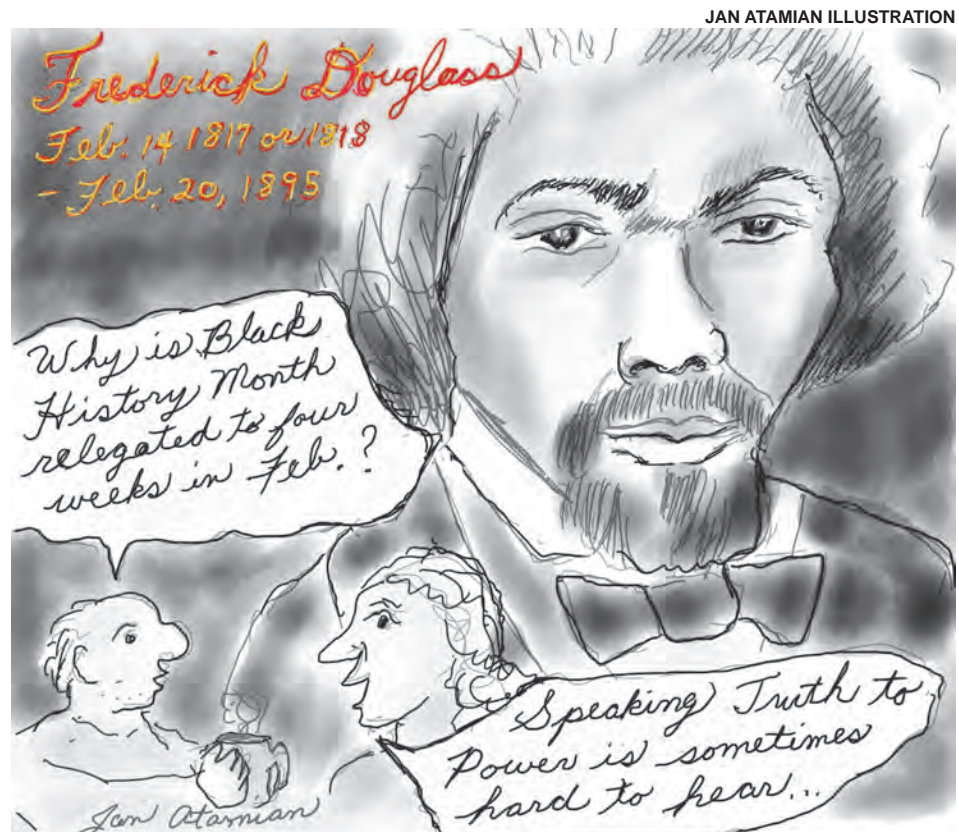 JAN ATAMIAN ILLUSTRATION
Frederick Douglass
Feb. 14 1817 or 1818
- Feb. 20, 1895
Why is Black
History Month
relegated to four
weeks in Feb.?
Speaking Truth to
Power is sometimes
hard to hear...
Jan Atamian